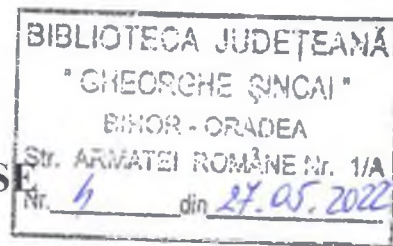 BIBLIOTECA JUDEȚEANĂ
"GHEORGHE ȘINCAI"
BIHOR - ORADEA
Str. ARMATEI ROMÂNE Nr. 1/A
Nr. din 27.05.2022
SE